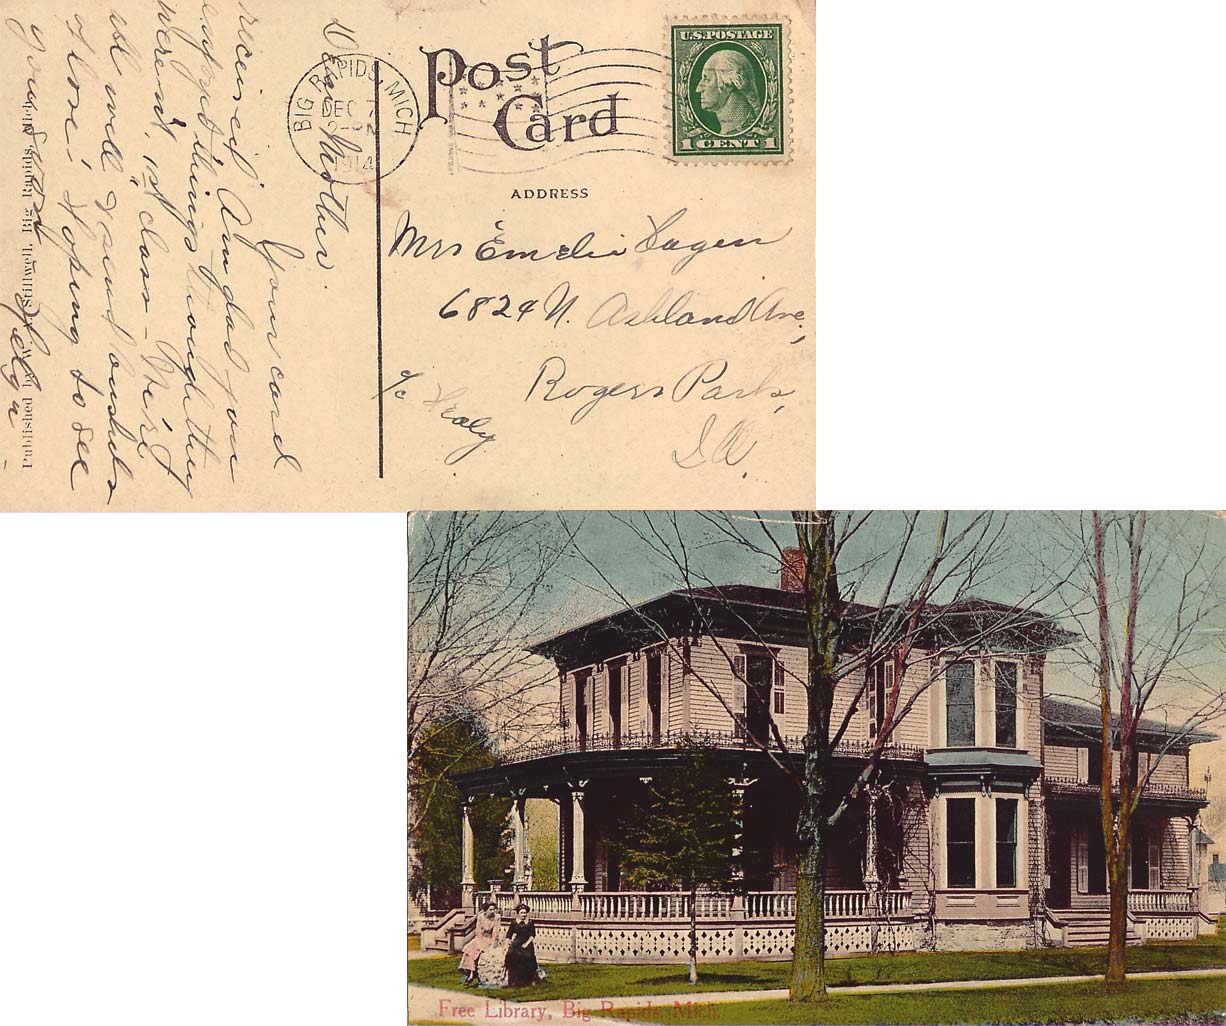 POST CARD
U.S. POSTAGE
1 CENT 1
BIG RAPIDS, MICH
DEC 7
1914
ADDRESS
Mrs Emelie Hagen
6824 N. Ashland Ave,
Rogers Park,
Ill.
c/o Healy
Dear Mother.
Your card
received. Am glad you
enjoyed things though they
weren't 1st class - We're
all well & send bushels
of love. Hoping to see
you
Published by Stillwell, Big Rapids, Mich.
Free Library, Big Rapids, Mich.